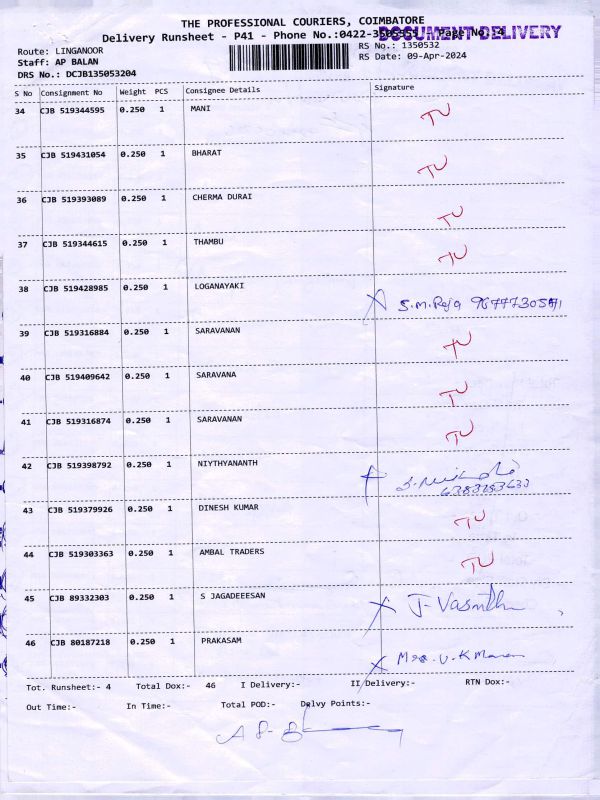 THE PROFESSIONAL COURIERS, COIMBATORE
DOCUMENT DELIVERY
Delivery Runsheet - P41 - Phone No.:0422- Page No.:4
Route: LINGANOOR RS No.: 1350532
Staff: AP BALAN RS Date: 09-Apr-2024
DRS No.: DCJB135053204
S No Consignment No Weight PCS Consignee Details Signature
34 CJB 519344595 0.250 1 MANI TU
35 CJB 519431054 0.250 1 BHARAT TU
36 CJB 519393089 0.250 1 CHERMA DURAI TU
37 CJB 519344615 0.250 1 THAMBU TU
38 CJB 519428985 0.250 1 LOGANAYAKI X S.M.Reja
39 CJB 519316884 0.250 1 SARAVANAN TU
40 CJB 519409642 0.250 1 SARAVANA TU
41 CJB 519316874 0.250 1 SARAVANAN TU
42 CJB 519398792 0.250 1 NIYTHYANANTH
43 CJB 519379926 0.250 1 DINESH KUMAR TU
44 CJB 519303363 0.250 1 AMBAL TRADERS TU
45 CJB 89332303 0.250 1 S JAGADEEESAN X J-Vasnthu
46 CJB 80187218 0.250 1 PRAKASAM X
Tot. Runsheet:- 4 Total Dox:- 46 I Delivery:- II Delivery:- RTN Dox:-
Out Time:- In Time:- Total POD:- Delvy Points:-